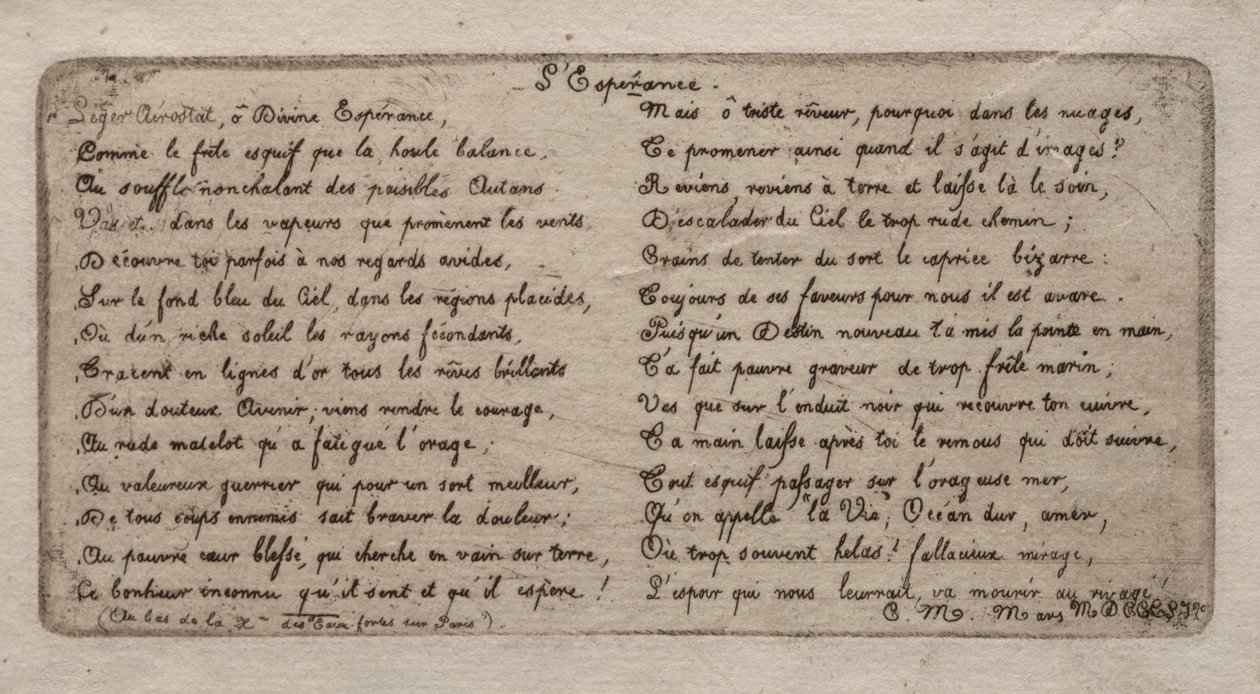 L'Espérance.
Léger Aérostat, ô Divine Espérance,
Comme le frêle esquif que la houle balance,
Au souffle nonchalant des paisibles Autans
Vas et dans les vapeurs que promènent les vents
Découvre toi parfois à nos regards avides,
Sur le fond bleu du Ciel, dans les régions placides,
Où d'un riche soleil les rayons fécondants,
Tracent en lignes d'or tous les rêves brillants
D'un douteux Avenir; viens rendre le courage,
Au rude matelot qu'a fatigué l'orage;
Au valeureux guerrier qui pour un sort meilleur,
De tous coups ennemis sait braver la douleur;
Au pauvre cœur blessé, qui cherche en vain sur terre,
Le bonheur inconnu qu'il sent et qu'il espère!
(Au bas de la des Eaux fortes sur Paris).
Mais ô triste rêveur, pourquoi dans les nuages,
Te promener ainsi quand il s'agit d'images?
Reviens, reviens à terre et laisse là le soin,
D'escalader du Ciel le trop rude chemin;
Crains de tenter du sort le caprice bizarre:
Toujours de ses faveurs pour nous il est avare.
Puisqu'un Destin nouveau t'a mis la pointe en main,
T'a fait pauvre graveur de trop frêle marin;
Vas que sur l'enduit noir qui recouvre ton cuivre,
Ta main laisse après toi le remous qui doit suivre,
Tout esquif passager sur l'orageuse mer,
Qu'on appelle "la Vie", Océan dur, amer,
Où trop souvent helas! fallacieux mirage,
L'espoir qui nous leurrait, va mourir au rivage!
C. M. Mars